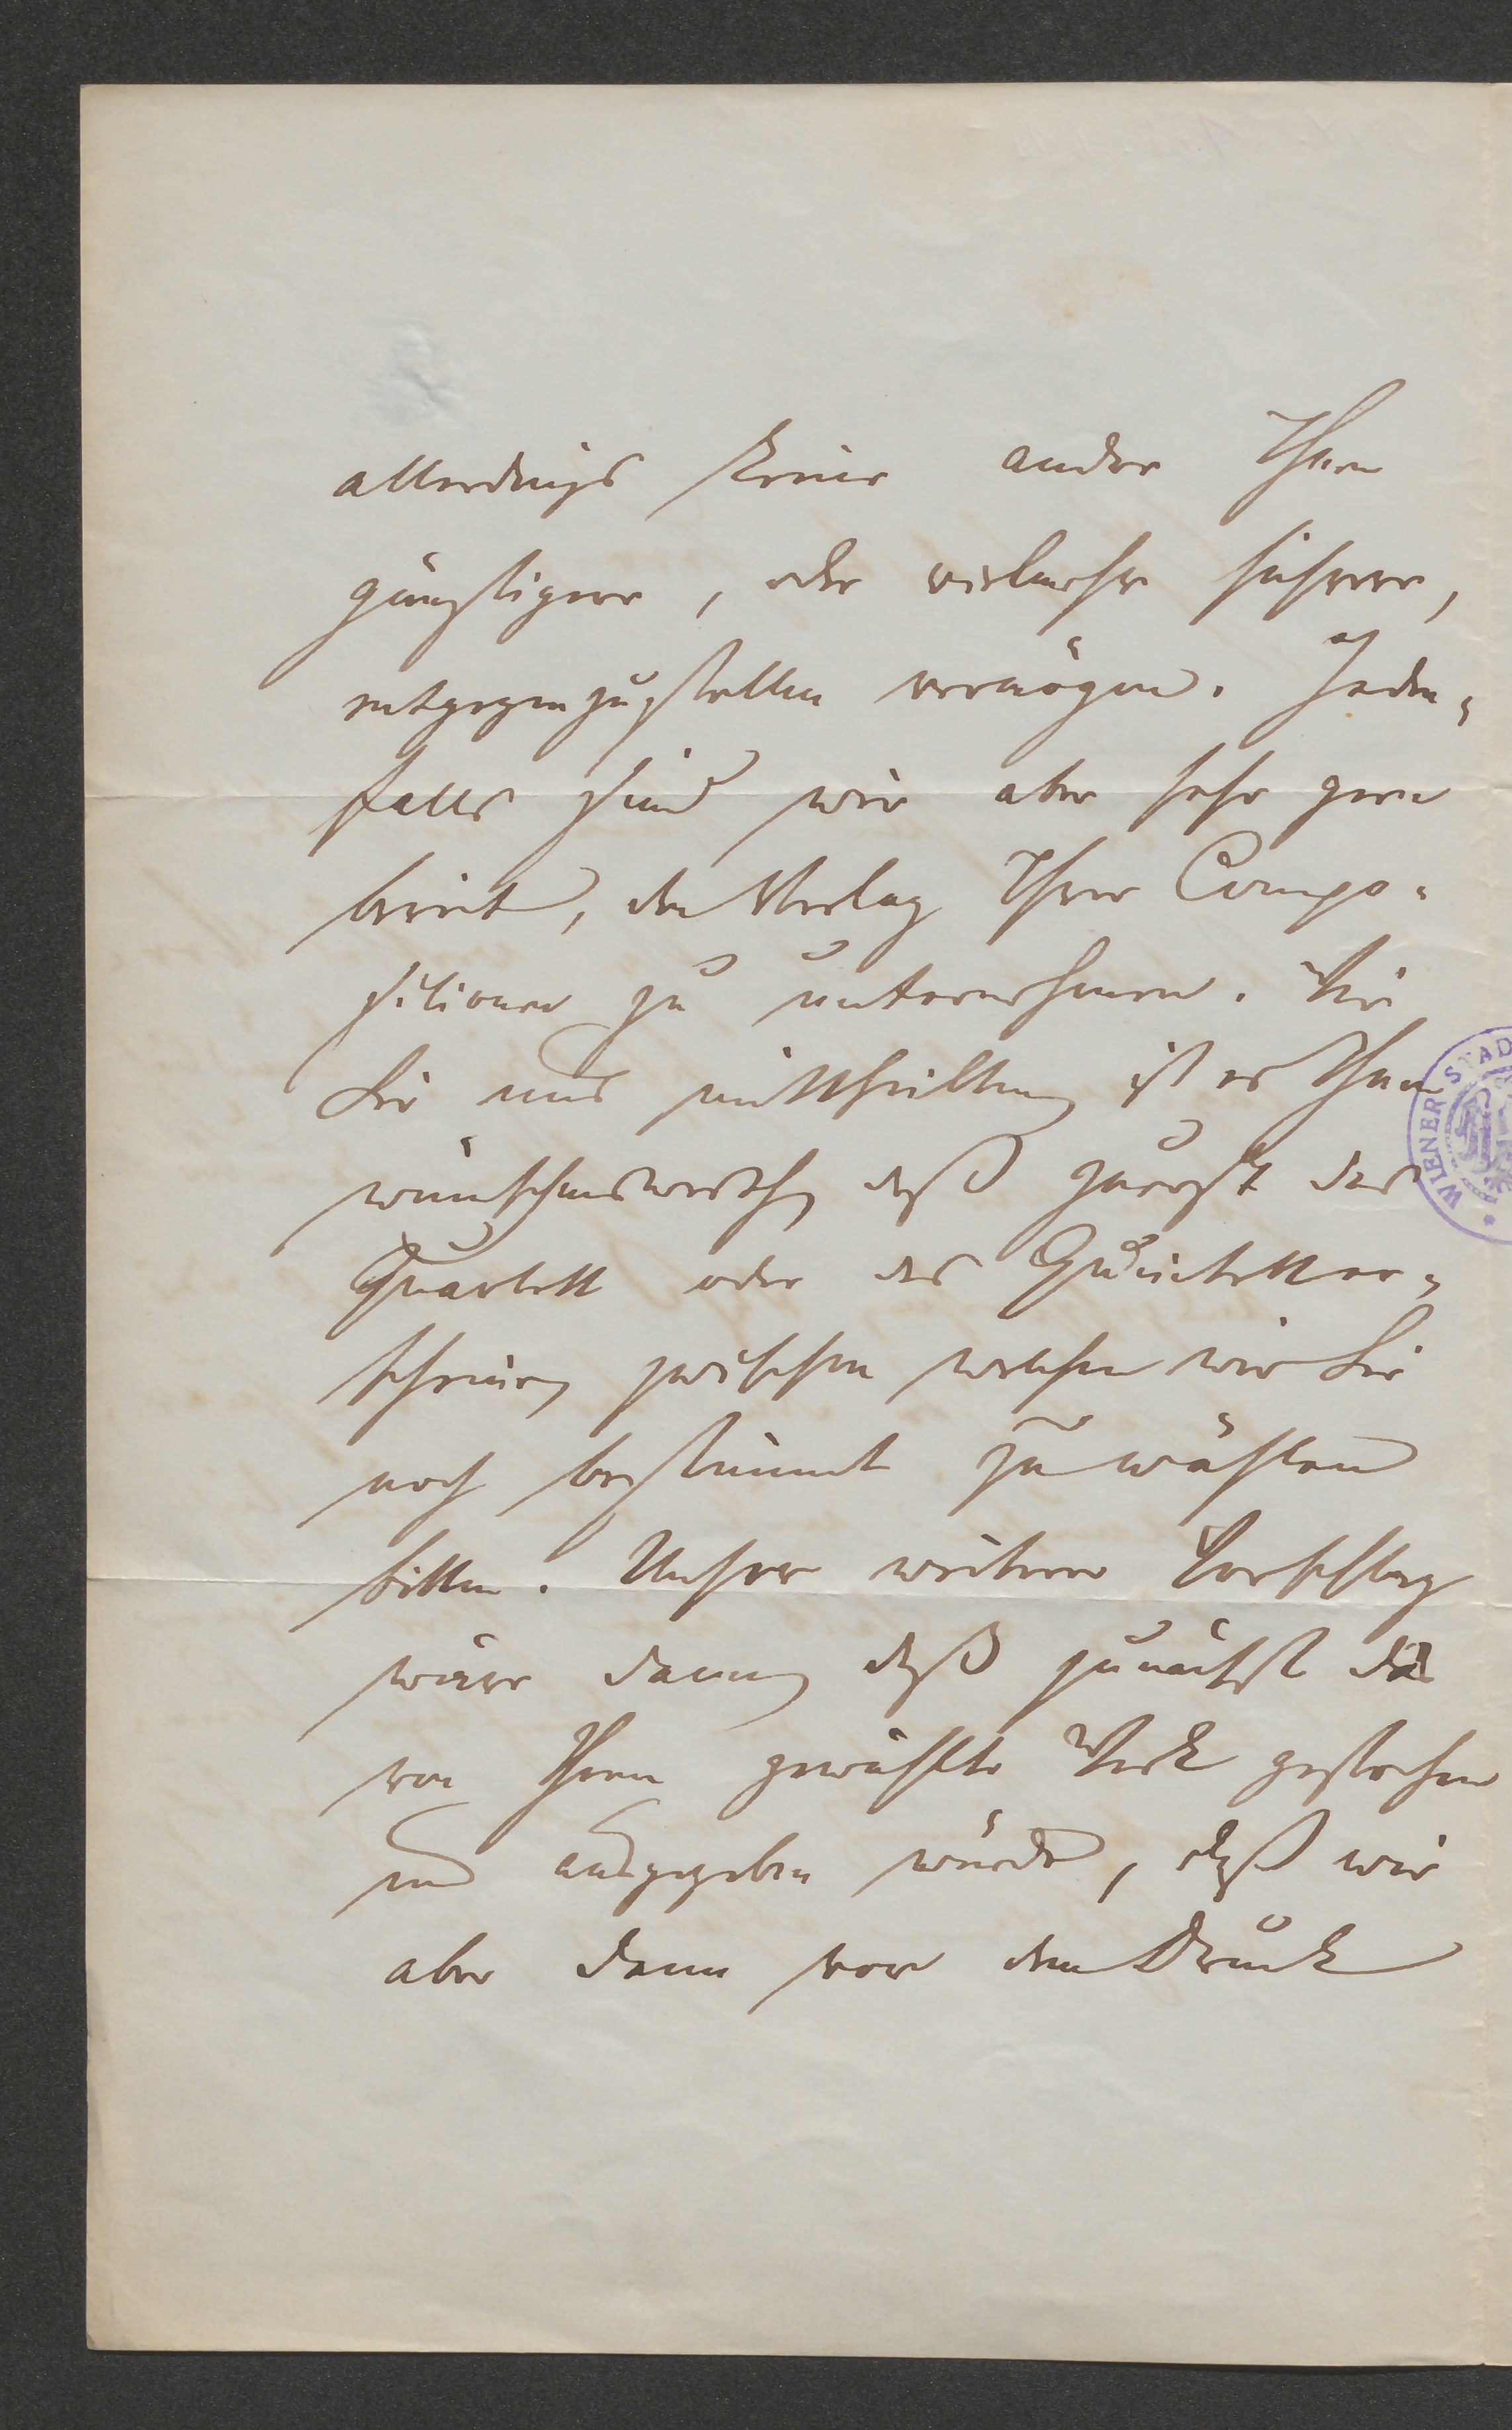 allerdings keine andere Ihnen
günstigere, oder vielmehr sichrere,
entgegenzustellen vermögen. Jeden-
falls sind wir aber sehr gern
bereit, den Verlag Ihrer Compo-
sitionen zu unternehmen. Wie
Sie uns mittheilten ist es Ihnen
wünschenswerth daß zuerst das
Quartett oder das Quintett er-
scheine, zwischen welchen wir Sie
noch bestimmt zu wählen
bitten. Unser weiterer Vorschlag
wäre dann daß zunächst das
von Ihnen gewählte Werk gestochen
und ausgegeben würde, daß wir
aber dann vor dem Druck
WIENER STAD